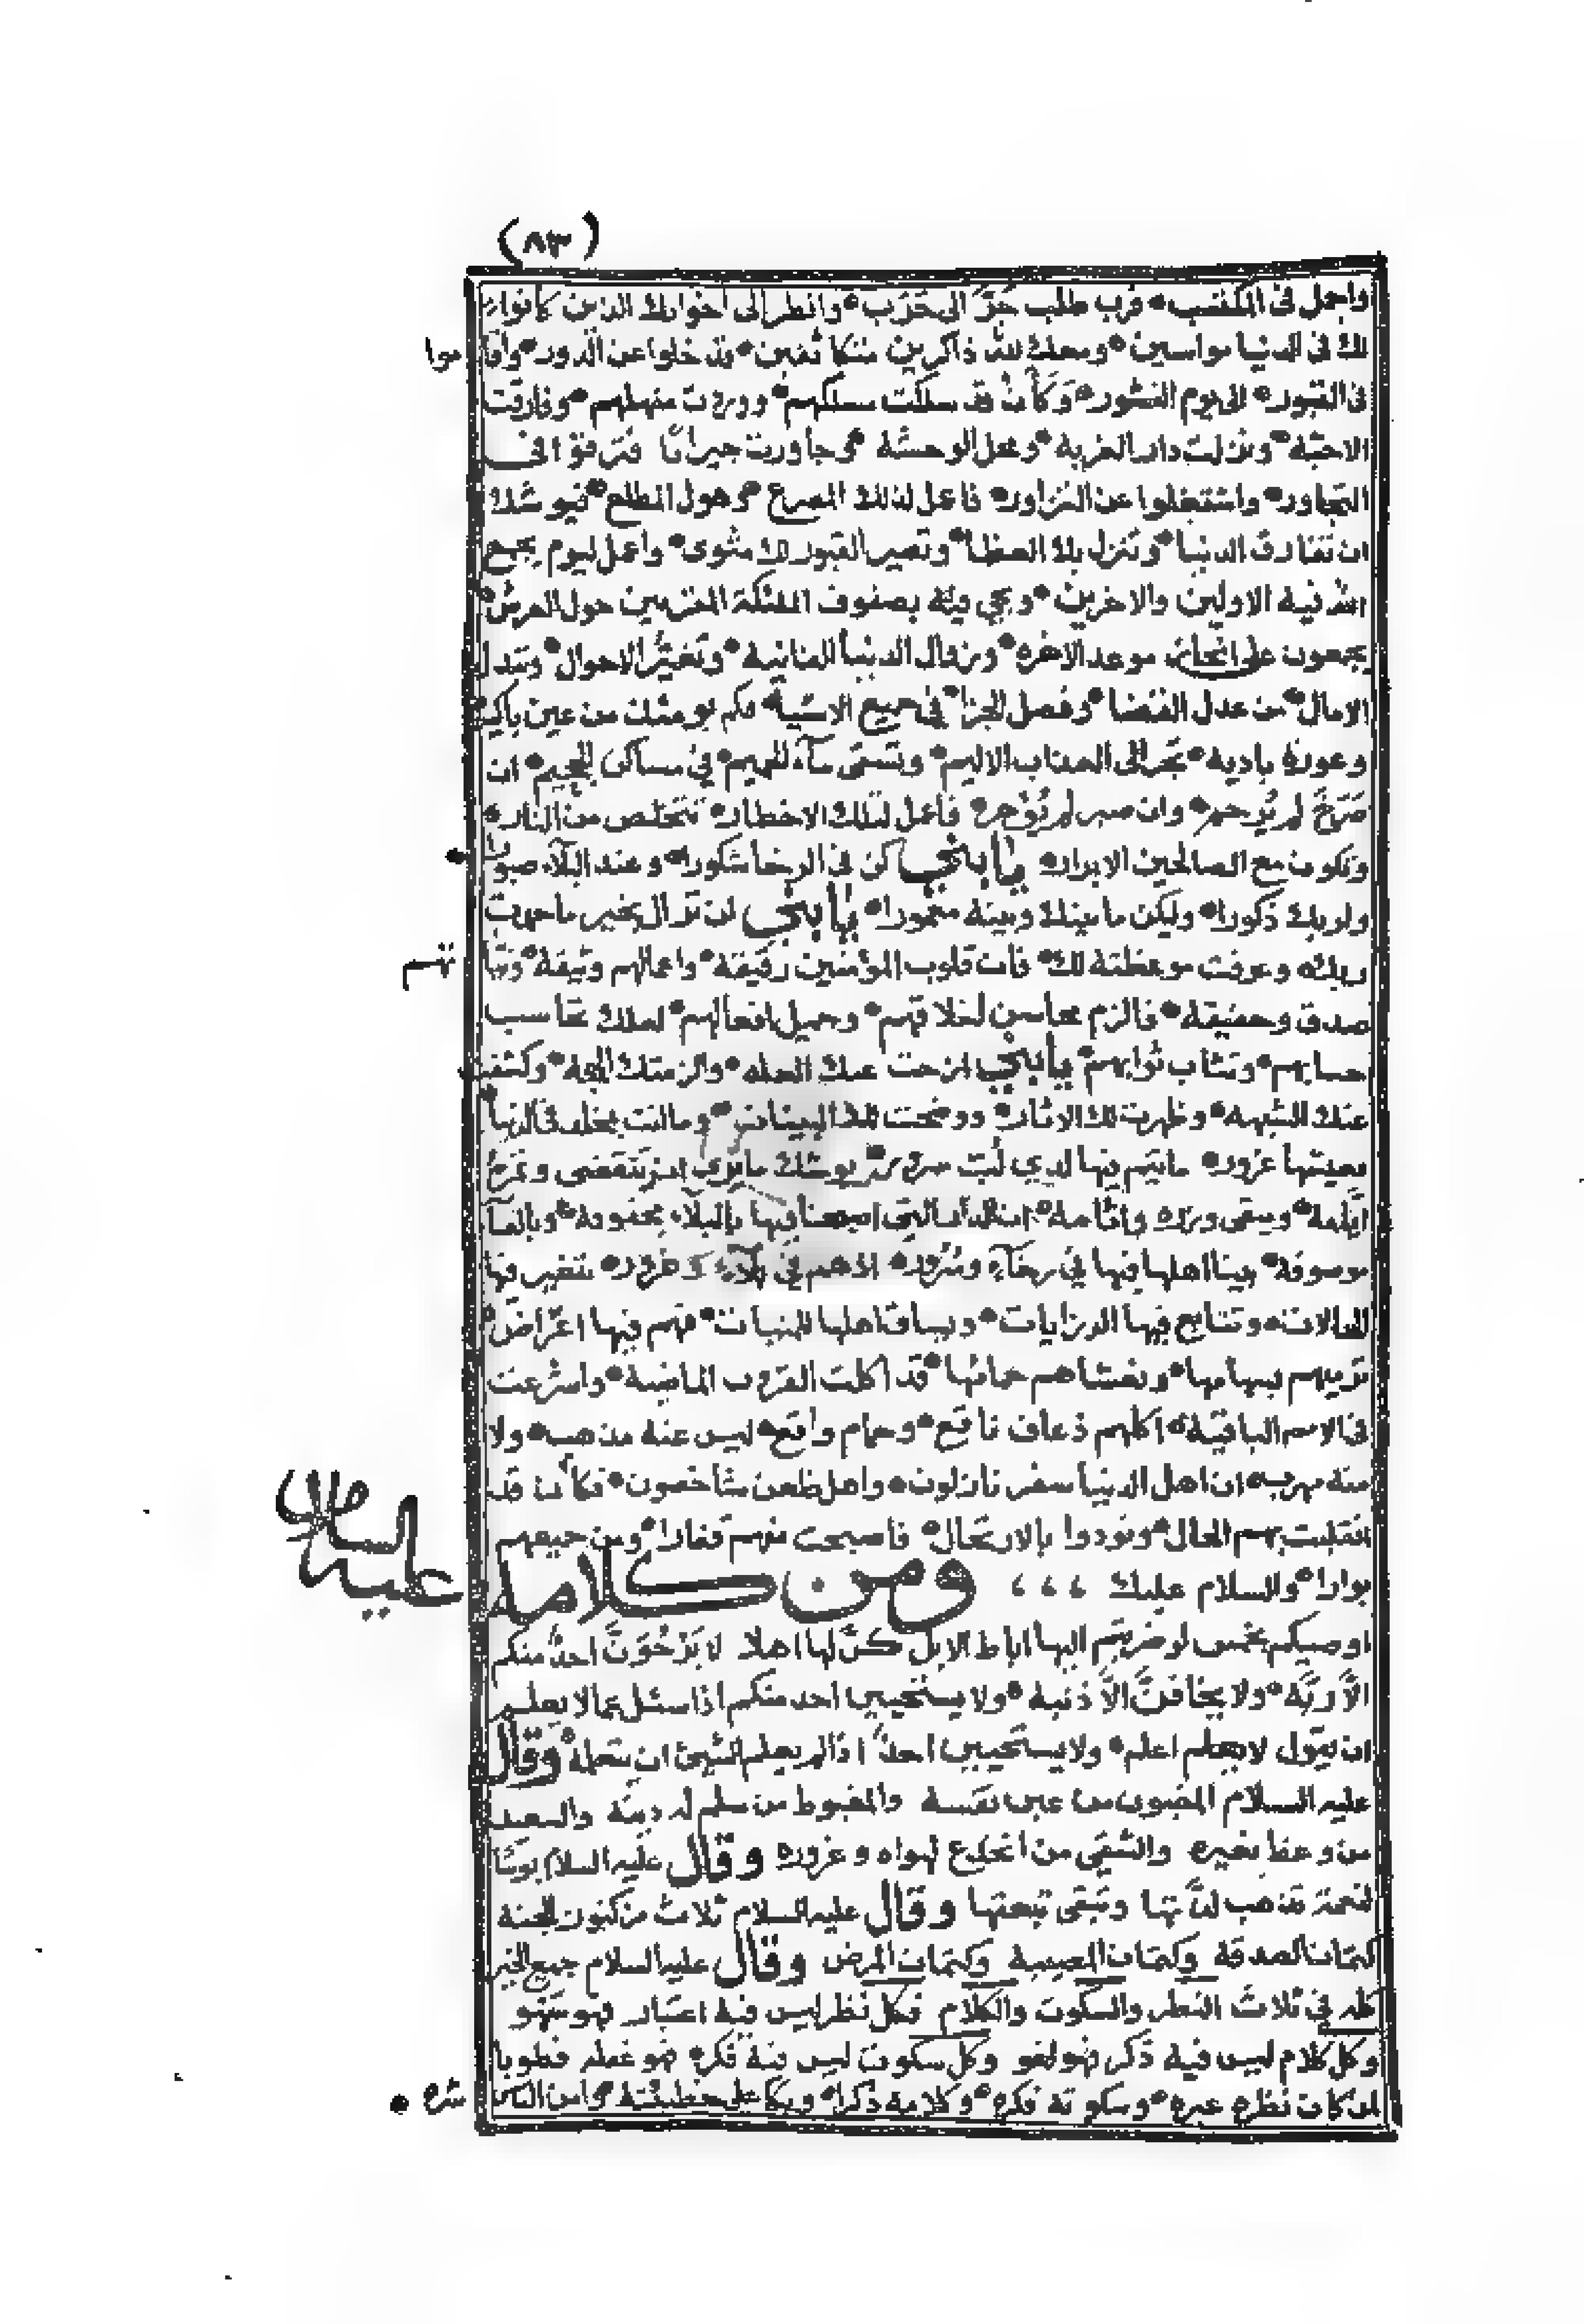 (٨٣)
واجمل فى المكتسب • فرب طلب جَرَّ الى حَرَب • وانظر الى اخوانك الذين كانوا
لك فى الدنيا مواسين • ومعك لله ذاكرين متكاثفين • قد خلوا عن الدور • واقاموا
فى القبور • الى يوم النشور • وَكَأن قد سلكت مسلكهم • ووردت منهلهم • وفارقت
الاحبّة • ونزلت دار الغربة • ومحل الوحشة • وجاورت جيرانًا فترقوا فى
التجاور • واشتغلوا عن التزاور • فاعمل لذلك المصرع • وهول المطلع • فيوشك
ان تفارق الدنيا • وتنزل بك العظما • وتصير القبور لك مثوى • واعمل ليوم يجمع
الله فيه الاولين والاخرين • ويجى فيه بصفوف الملئكة المقربين حول العرش •
يجمعون على انجاز موعد الاخره • وزوال الدنيا الفانية • وتغيّر الاحوال • وتبدل
الامال • من عدل القضا • وفصل الجزا • فى جميع الاشيا • فكم يومئذ من عين باكية
وعورة بادية • تجر الى العذاب الاليم • وتسقى مآء الحميم • في مساكن الجحيم • ان
صَرَخَ لم يُرحم • وان صبر لم يُؤجر • فاعمل لتلك الاخطار • تتخلص من النار •
وتكون مع الصالحين الابرار • يا بني كن فى الرخا شكورا • وعند البلآء صبورا •
ولربك ذكورا • وليكن ما بينك وبينه معمورا • يا بني لن تزال بخير ما حمدت
ربك • وعرفت موعظته لك • فان قلوب المؤمنين رقيقة • واعمالهم وثيقة • ونيّاتهم
صدق وحقيقة • فالزم محاسن اخلاقهم • وجميل افعالهم • لعلك تحاسب
حسابهم • وتثاب ثوابهم • يا بني ازحت عنك العله • والزمتك الحجة • وكشفت
عنك الشبهة • وظهرت لك الاثار • ووضحت لك البينات • وما انت بمخلد فى الدنيا •
بعيشها غرور • ما يتم فيها لذي لُب سرور • يوشك ما ترى ان ينقضى وتمرّ
ايّامه • ويبقى وزره واثامه • ان الدنيا التى اصبحنا فيها بالبلآء محفوفة • وبالفنآ
موصوفة • بينا اهلها فيها في رخآء وسُرور • اذ هم في بلآء وغرور • تتغير فيها
الحالات • وتتتابع فيها الرزايات • ويساق اهلها للمنيات • فهم فيها اغراض •
ترميهم بسهامها • ويغشاهم حمامها • قد اكلت القرون الماضية • واسرعت
فى الامم الباقية • اكلهم ذعاف ناقع • وحمام واقع • ليس عنه مذهب • ولا
منه مهرب • ان اهل الدنيا سفر نازلون • واهل ظعن شاخصون • فكأن قد
انقلبت بهم الحال • ونودوا بالارتحال • فاصبحت منهم قفارا • ومن جميعهم
بوارا • والسلام عليك ، ، ، ومن كلامه عليه السلام
اوصيكم بخمس لو ضربتم اليها اباط الابل كنّ لها اهلا لا يَرْجُوَنَّ احدٌ منكم
الّا ربّه • ولا يخافنَّ الّا ذنبه • ولا يستحيين احد منكم اذا سئل عما لا يعلم
ان يقول لا يعلم اعلم • ولا يستحيين احدٌ اذا لم يعلم الشيئ ان يتعلمه • وقال
عليه السلام المغبون من غبن نفسه والمغبوط من سلم له دينه والسعيد
من وعظ بغيره والشقى من انخدع لهواه وغروره وقال عليه السلام بوسًا
لنعمة تذهب لذّتها وتبقى تبعتها وقال عليه السلام ثلاث من كنوز الجنة
كتمان الصدقة وكتمان المصيبة وكتمان المرض وقال عليه السلام جمع الخير
كله فى ثلاث النظر والسكوت والكلام فكل نظر ليس فيه اعتبار فهو سَهْو
وكل كلام ليس فيه ذكر فهو لغو وكل سكوت ليس فيه فكره فهو غفله فطوبا
لمن كان نظره عبره • وسكوته فكره • وكلامه ذكرا • وبكا على خطيئته • وامن الناس شره •